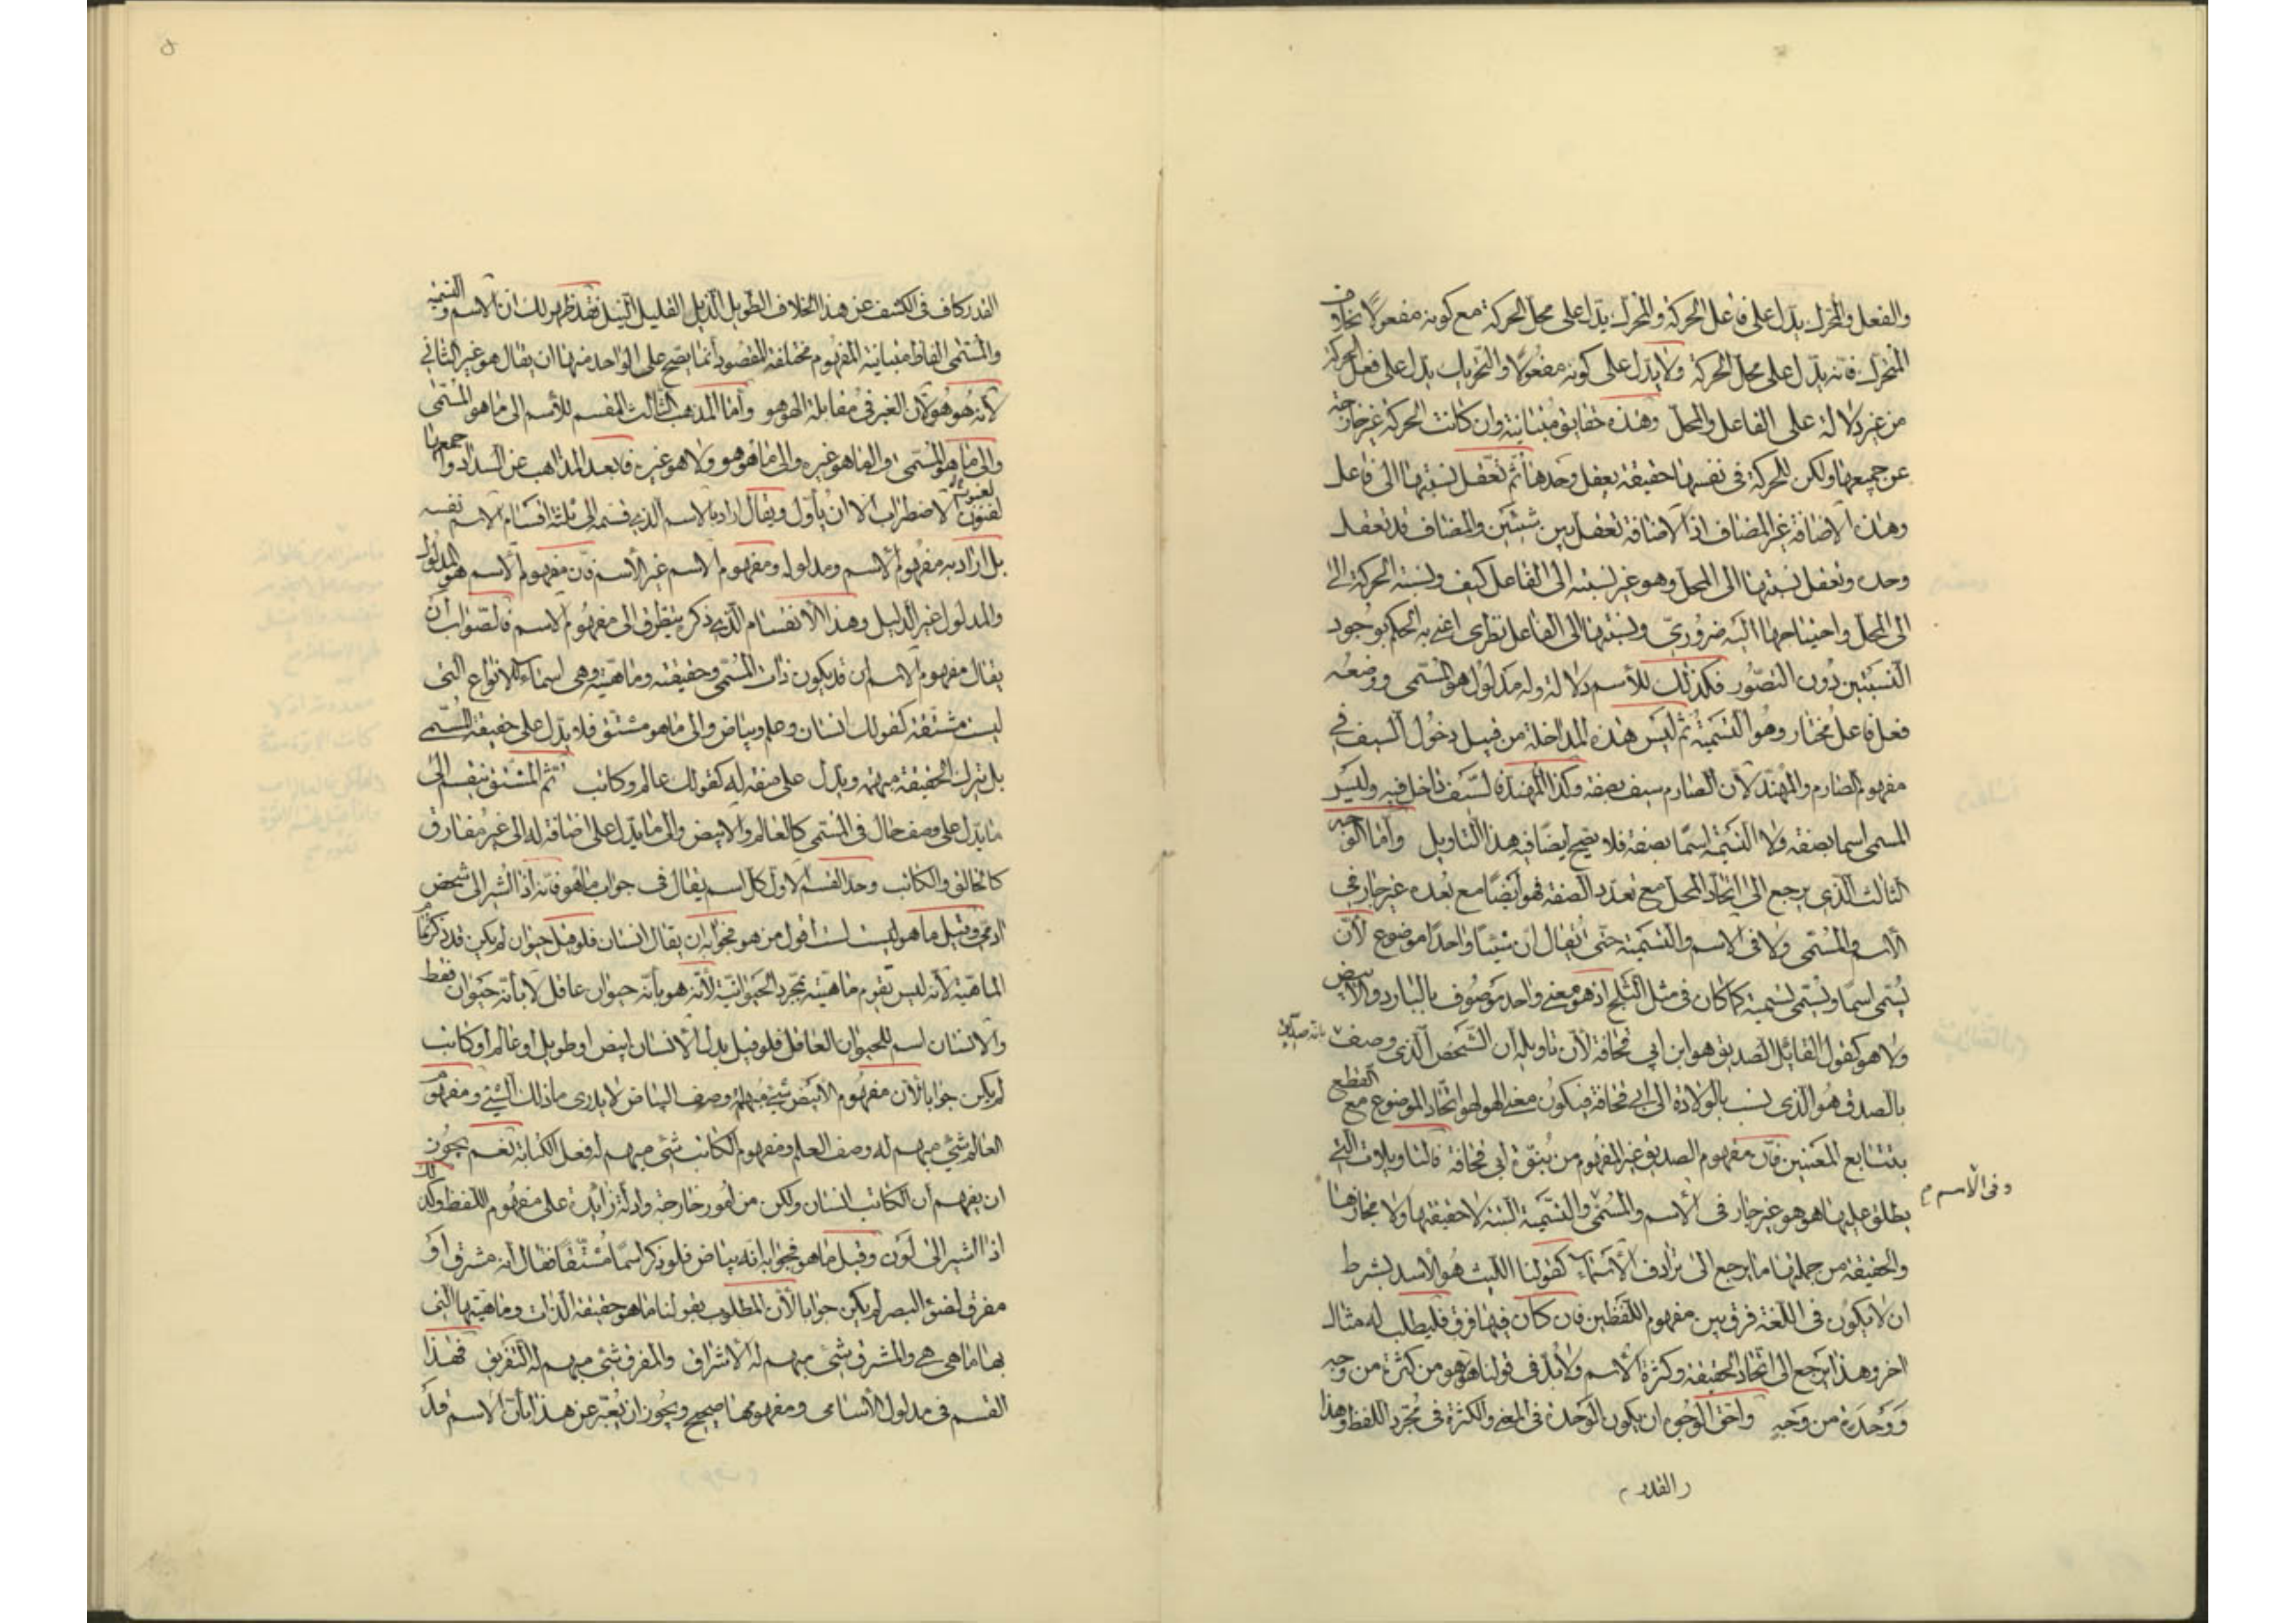 والفعل والمحرك يدل على فاعل الحركة والمحرك يدل على محل الحركة مع كونه مفعولا بخلاف
المتحرك فانه يدل على محل الحركة ولا يدل على كونه مفعولا والتحريك يدل على فعل الحركة
من غير دلالة على الفاعل والمحل وهذه حقايق متباينة وان كانت الحركة غير خارجة
عن جميعها ولكن للحركة في نفسها حقيقة يعقل وحدها ثم تعقل نسبتها الى فاعل
وهذه الاضافة غير المضاف اذ الاضافة تعقل بين شيئين والمضاف قد تعقل
وحده وتعقل نسبتها الى المحل وهو غير نسبته الى الفاعل كيف ونسبة الحركة الى
الى المحل واحتياجها اليه ضروري ونسبتها الى الفاعل نظري اعني به الحكم بوجود
النسبتين دون التصور فكذلك للأسم دلالة وله مدلول هو المسمى ووضعه
فعل فاعل مختار وهو التسمية ثم ليس هذه المداخلة من قبيل دخول السيف في
مفهوم الصارم والمهند لأن الصارم سيف بصفة وكذا المهند فالسيف داخل فيه وليس
المسمى اسما بصفة ولا التسمية اسما بصفة فلا يصح ايضا فيه هذا التاويل واما الوجه
الثالث الذي يرجع الى اتحاد المحل مع تعدد الصفة فهو ايضا مع بعده غير جار في
الأسم والمسمى ولا في الاسم والتسمية حتى يقال ان شيئا واحدا موضوع لأن
يسمى اسما ويسمى تسمية كما كان في مثل الثلج اذ هو معنى واحد موصوف بالبارد والابيض
ولا هو كقول القائل الصديق هو ابن ابي قحافة لأن تاويله ان الشخص الذي وصف بانه صديق
بالصدق هو الذي نسب بالولادة الى ابي قحافة فيكون معنى الهو هو اتحاد الموضوع مع القطع
بتتابع المعنيين فان مفهوم الصديق غير المفهوم من بنوة ابي قحافة فالتاويلات التي
يطلق عليها هو هو غير جار في الاسم والمسمى والتسمية البتة لا حقيقتها ولا مجازها
وفى الأسم م
والحقيقة من جملتها ما يرجع الى ترادف الأسماء كقولنا الليث هو الأسد بشرط
ان لا يكون في اللغة فرق بين مفهوم اللفظين فان كان فيها فرق فليطلب له مثال
اخر وهذا يرجع الى اتحاد الحقيقة وكثرة الاسم ولا بد في قولنا هو هو من كثرة من وجه
ووحدة من وجه واحق الوجوه ان يكون الوحدة في المعنى والكثرة في مجرد اللفظ وهذا
القدر م
القدر كاف في الكشف عن هذا الخلاف الطويل الذيل القليل النيل فقد ظهر لك ان الاسم والتسمية
والمسمى الفاظ متباينة المفهوم مختلفة المقصود انما يصح على الواحد منها ان يقال هو غير الثاني
لا انه هو هو لأن الغير في مقابلة الهو هو واما المذهب الثالث المقسم للأسم الى ما هو المسمى
والى ما هو غيره والى ما لا هو هو ولا هو غيره فابعد المذاهب عن السداد واجمعها
لفنون الاضطراب الا ان يأول ويقال اراد بالاسم الذي قسمه الى ثلثة اقسام الاسم نفسه
بل اراد به مفهوم الأسم ومدلوله ومفهوم الاسم غير الأسم فان مفهوم الأسم هو المدلول
والمدلول غير الدليل وهذا الأنقسام الذي ذكره يتطرق الى مفهوم الاسم فالصواب ان
يقال مفهوم الاسم ان قد يكون ذات المسمى وحقيقته وماهيته وهي اسماء للانواع التي
ليست مشتقة كقولك انسان وعلم وبياض والى ما هو مشتق فلا يدل على حقيقة المسمى
بل يترك الحقيقة مبهمة ويدل على صفة له كقولك عالم وكاتب ثم المشتق ينقسم الى
ما يدل على وصف حال في المسمى كالعالم والابيض والى ما يدل على اضافة له الى غير مفارق
كالخالق والكاتب وحد القسم الاول كل اسم يقال في جواب ما هو فانه اذا اشير الى شخص
ادمي وقيل ما هو ليست اقول من هو فجوابه ان يقال انسان فلو قيل حيوان لم يكن قد ذكر تمام
الماهية لأنه ليس تقوم ماهيته بمجرد الحيوانية لأنه هو بأنه حيوان عاقل لا بأنه حيوان فقط
والانسان اسم للحيوان العاقل فلو قيل بدل الأنسان ابيض او طويل او عالم او كاتب
لم يكن جوابا لأن مفهوم الأبيض شيء مبهم له وصف البياض لا يدرى ما ذلك الشيء ومفهوم
العالم شيء مبهم له وصف العلم ومفهوم الكاتب شيء مبهم له فعل الكتابة نعم يجوز
ان يفهم ان الكاتب انسان ولكن من امور خارجة وادلة زائدة على مفهوم اللفظ وكذلك
اذا اشير الى لون وقيل ما هو فجوابه انه بياض فلو ذكر اسما مشتقا فقال انه مشرق او
مفرق لضوء البصر لم يكن جوابا لأن المطلوب بقولنا ما هو حقيقة الذات وماهيتها التي
بها ما هي هي والمشرق شيء مبهم له الأشراق والمفرق شيء مبهم له التفريق فهذا
القسم في مدلول الأسامى ومفهومها صحيح ويجوز ان يعبر عن هذا بأن الاسم قد